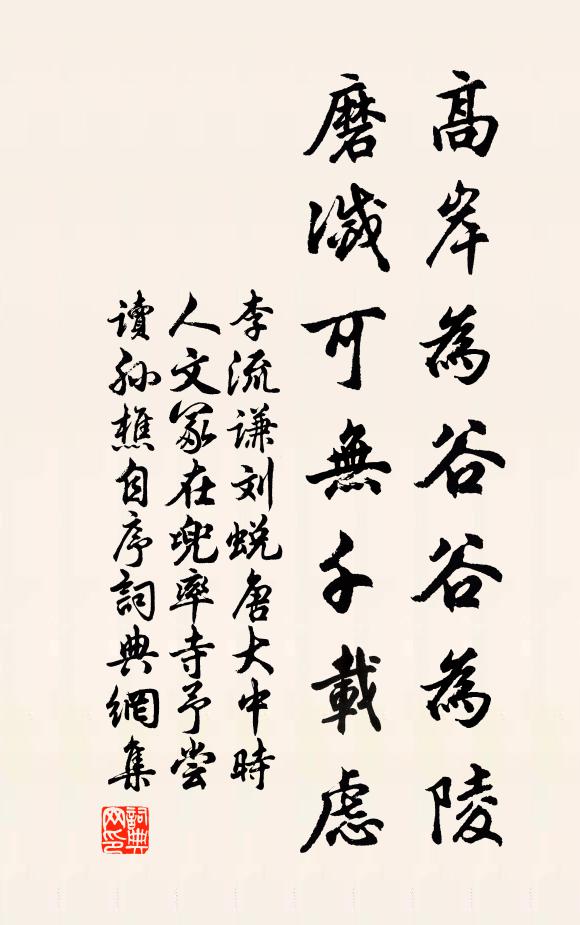 高岸為谷谷為陵
磨滅可無千載慮
李流谦刘蜕唐大中時
人文冢在兜率寺予嘗
讀孙樵自序詞典網集
詞典网印